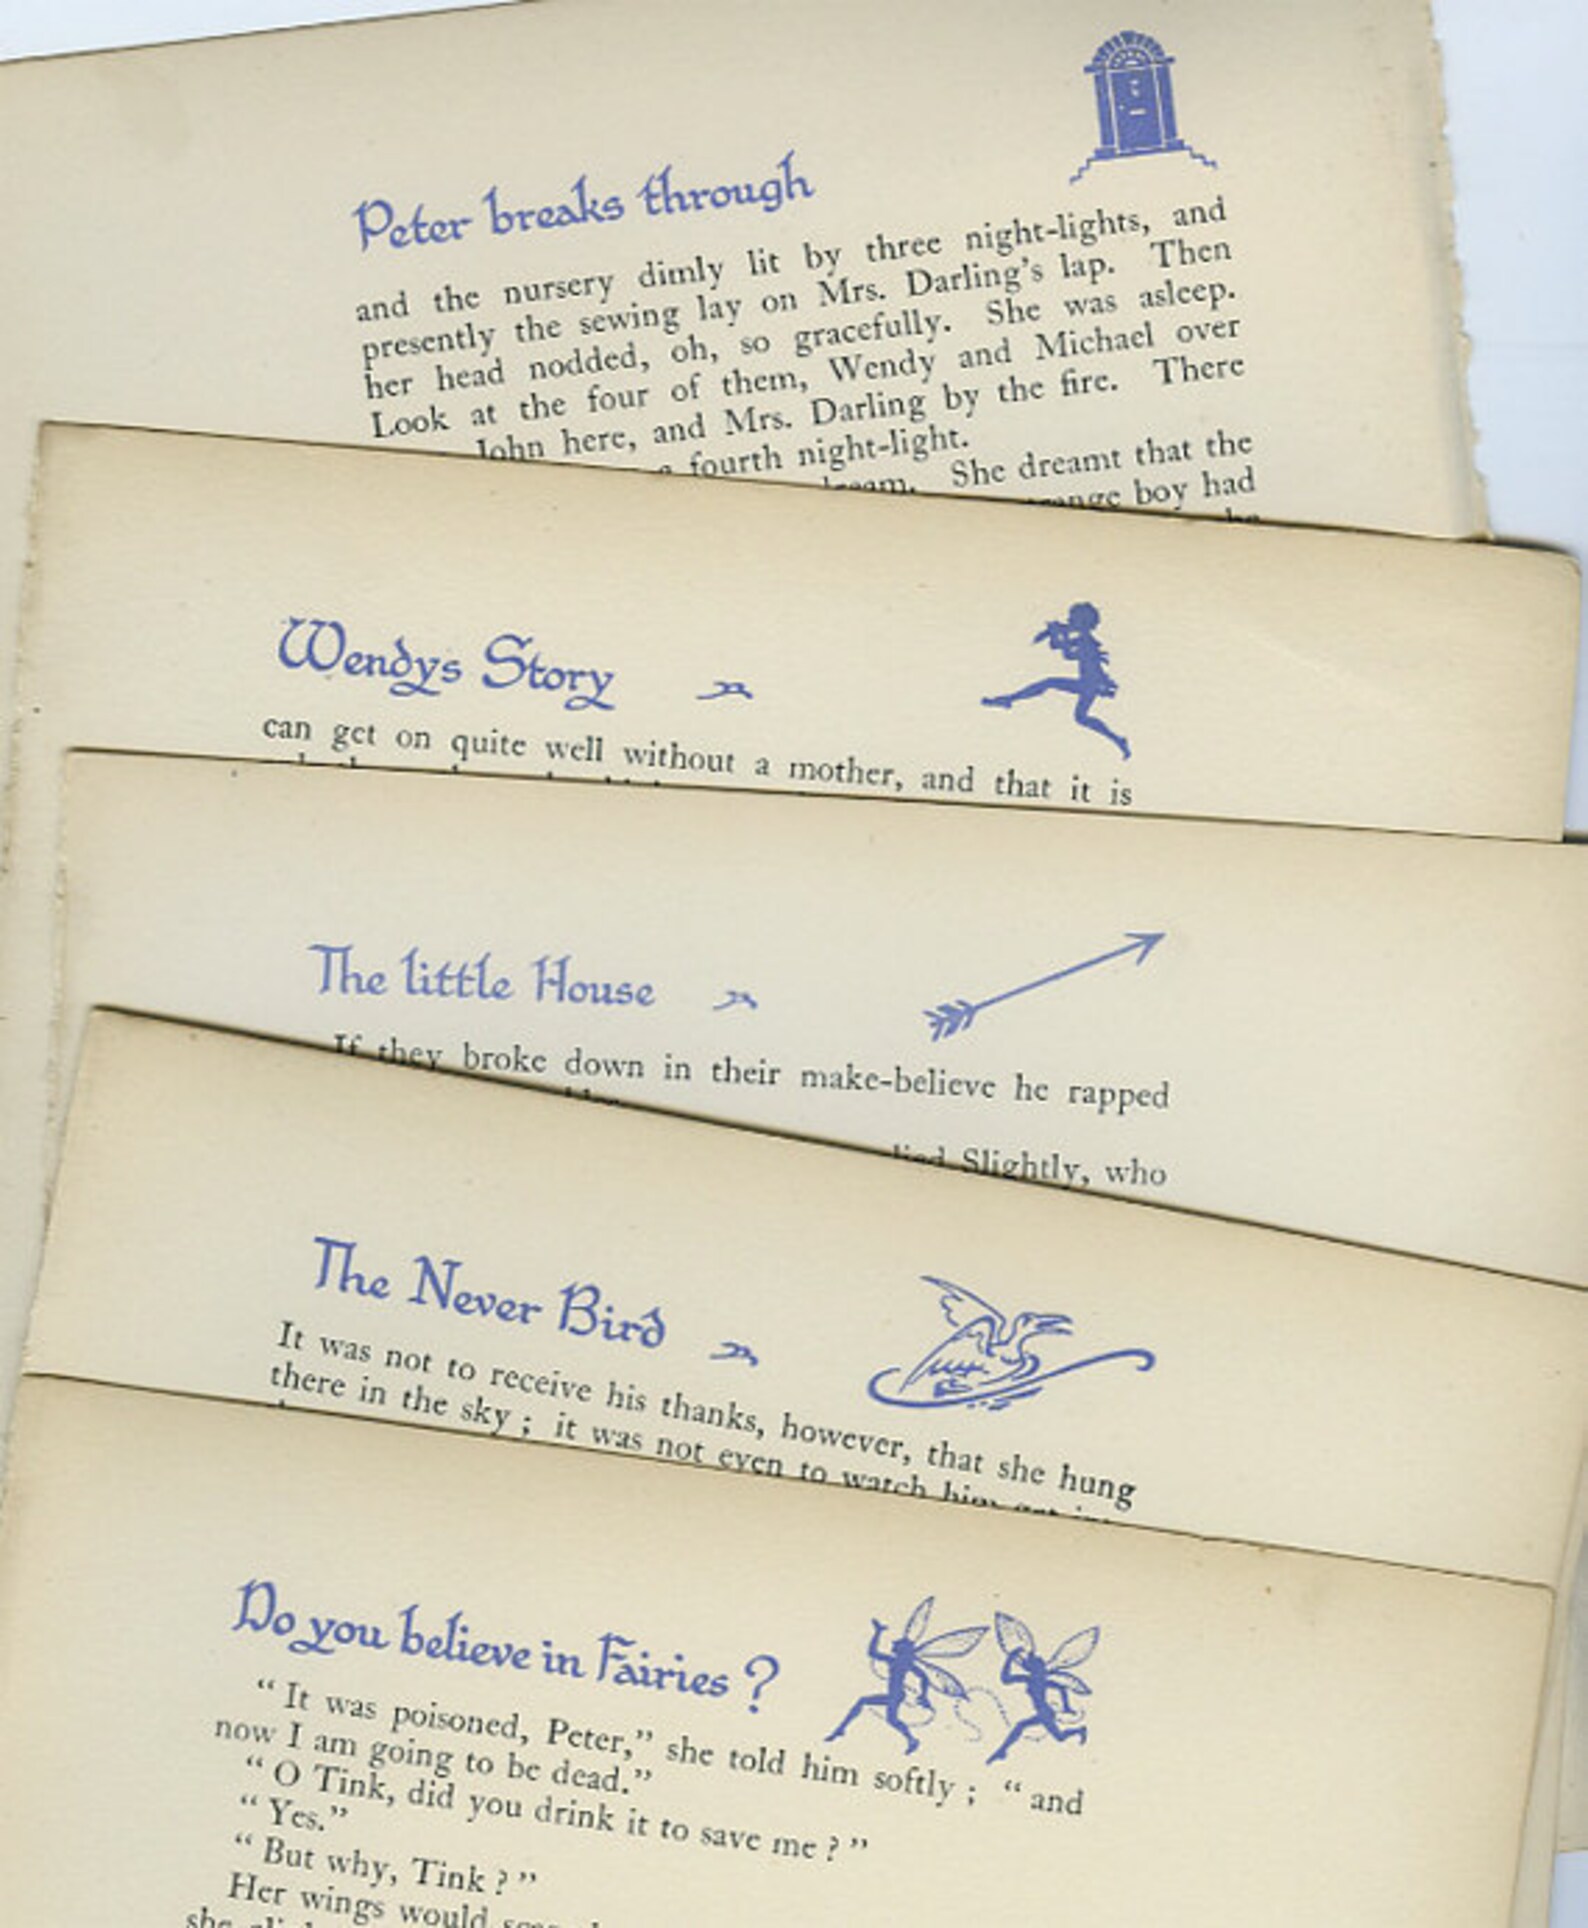 Peter breaks through
and the nursery dimly lit by three night-lights, and
presently the sewing lay on Mrs. Darling's lap. Then
her head nodded, oh, so gracefully. She was asleep.
Look at the four of them, Wendy and Michael over
John here, and Mrs. Darling by the fire. There
a fourth night-light.
dream. She dreamt that the
strange boy had
Wendys Story
can get on quite well without a mother, and that it is
The little House
If they broke down in their make-believe he rapped
Slightly, who
The Never Bird
It was not to receive his thanks, however, that she hung
there in the sky ; it was not even to watch him get into
Do you believe in Fairies ?
“ It was poisoned, Peter,” she told him softly ; “ and
now I am going to be dead.”
“ O Tink, did you drink it to save me ? ”
“ Yes.”
“ But why, Tink ? ”
Her wings would
she